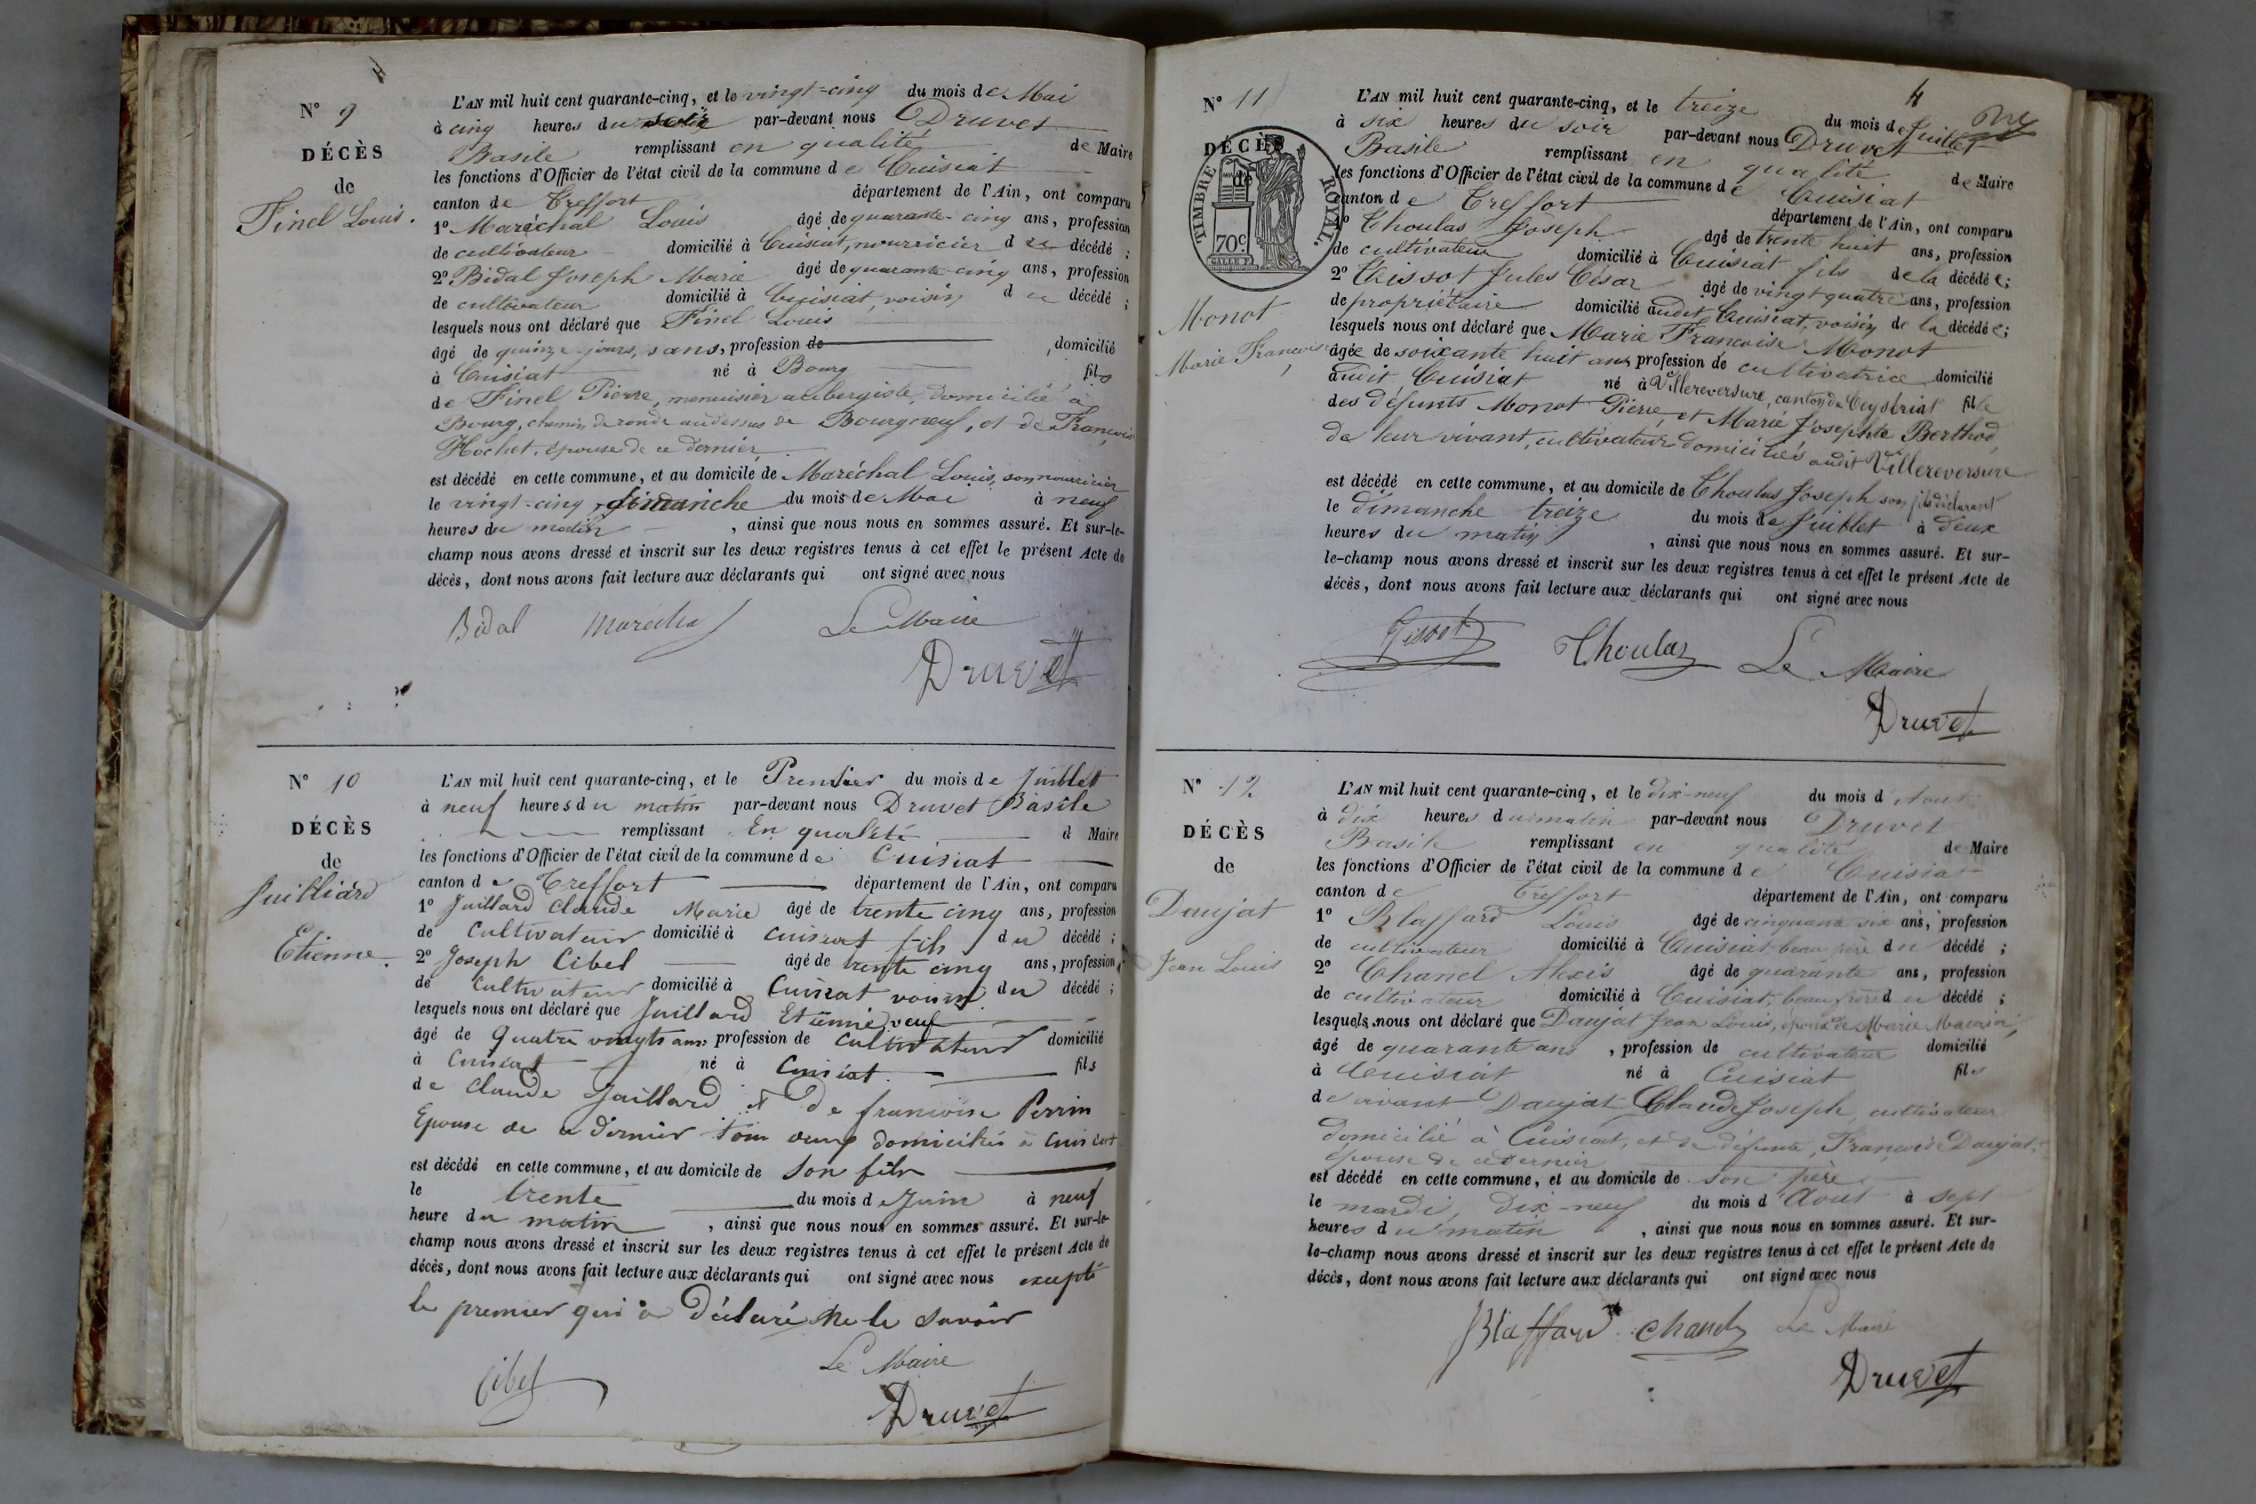 N° 9
DÉCÈS
de
Finel Louis.
L'AN mil huit cent quarante-cinq, et le vingt-cinq du mois de Mai
à cinq heures du soir par-devant nous Druvet
Basile remplissant en qualité de Maire
les fonctions d'Officier de l'état civil de la commune de Cuisiat
canton de Treffort département de l'Ain, ont comparu
1° Maréchal Louis âgé de quarante-cinq ans, profession
de cultivateur domicilié à Cuisiat, nourricier du décédé ;
2° Bidal Joseph Marie âgé de quarante-cinq ans, profession
de cultivateur domicilié à Cuisiat, voisin du décédé ;
lesquels nous ont déclaré que Finel Louis
âgé de quinze jours, sans, profession de , domicilié
à Cuisiat né à Bourg fils
de Finel Pierre, menuisier aubergiste, domicilié à
Bourg, chemin de ronde au dessus de Bourgneuf, et de Françoise
Hochet, épouse de ce dernier,
est décédé en cette commune, et au domicile de Maréchal Louis, son nourricier
le vingt-cinq, dimanche du mois de Mai à neuf
heures du matin , ainsi que nous nous en sommes assuré. Et sur-le-
champ nous avons dressé et inscrit sur les deux registres tenus à cet effet le présent Acte de
décès, dont nous avons fait lecture aux déclarants qui ont signé avec nous
Bidal Maréchal Le Maire
Druvet
N° 10
DÉCÈS
de
Juilliard
Etienne.
L'AN mil huit cent quarante-cinq, et le Premier du mois de Juillet
à neuf heures du matin par-devant nous Druvet Basile
remplissant En qualité d Maire
les fonctions d'Officier de l'état civil de la commune de Cuisiat
canton de Treffort département de l'Ain, ont comparu
1° Juillard Claude Marie âgé de trente cinq ans, profession
de Cultivateur domicilié à cuisiat fils du décédé ;
2° Joseph Cibel âgé de trente cinq ans, profession
de Cultivateur domicilié à Cuisiat voisin du décédé ;
lesquels nous ont déclaré que Juillard Etienne, veuf
âgé de Quatre vingts ans profession de Cultivateur domicilié
à Cuisiat né à Cuisiat fils
de Claude Juillard et de francoise Perrin
Epouse de ce dernier tous deux domiciliés à Cuisiat
est décédé en cette commune, et au domicile de Son fils
le trente du mois de Juin à neuf
heure du matin , ainsi que nous nous en sommes assuré. Et sur-le-
champ nous avons dressé et inscrit sur les deux registres tenus à cet effet le présent Acte de
décès, dont nous avons fait lecture aux déclarants qui ont signé avec nous excepté
le premier qui a Déclaré ne le savoir
Cibel Le Maire
Druvet
4
N° 11
DÉCÈS
de
TIMBRE ROYAL.
70c.
Monot
Marie Françoise
L'AN mil huit cent quarante-cinq, et le treize du mois de Juillet
à six heures du soir par-devant nous Druvet
Basile remplissant en qualité de Maire
les fonctions d'Officier de l'état civil de la commune de Cuisiat
canton de Treffort département de l'Ain, ont comparu
1° Choulas Joseph âgé de trente huit ans, profession
de cultivateur domicilié à Cuisiat fils de la décédée ;
2° Tissot Jules César âgé de vingt quatre ans, profession
de propriétaire domicilié audit Cuisiat, voisin de la décédée ;
lesquels nous ont déclaré que Marie Françoise Monot
âgée de soixante huit ans profession de cultivatrice domicilié
audit Cuisiat né à Villereversure, canton de Ceyseriat fille
des défunts Monot Pierre, et Marie Josephte Berthod,
de leur vivant, cultivateurs domiciliés audit Villereversure
est décédé en cette commune, et au domicile de Choulas Joseph son fils déclarant
le dimanche treize du mois de Juillet à deux
heures du matin , ainsi que nous nous en sommes assuré. Et sur-
le-champ nous avons dressé et inscrit sur les deux registres tenus à cet effet le présent Acte de
décès, dont nous avons fait lecture aux déclarants qui ont signé avec nous
Tissot Choulas Le Maire
Druvet
N° 12
DÉCÈS
de
Daujat
Jean Louis
L'AN mil huit cent quarante-cinq, et le dix-neuf du mois d'Aout
à dix heures du matin par-devant nous Druvet
Basile remplissant en qualité de Maire
les fonctions d'Officier de l'état civil de la commune de Cuisiat
canton de Treffort département de l'Ain, ont comparu
1° Blaffard Louis âgé de cinquante six ans, profession
de cultivateur domicilié à Cuisiat, beau père du décédé ;
2° Chanel Alexis âgé de quarante ans, profession
de cultivateur domicilié à Cuisiat, beau frère du décédé ;
lesquels nous ont déclaré que Daujat Jean Louis, époux de Marie
âgé de quarante ans , profession de cultivateur domicilié
à Cuisiat né à Cuisiat fils
de vivant Daujat Claude Joseph, cultivateur
domicilié à Cuisiat, et de défunte, Françoise Daujat,
épouse de ce dernier
est décédé en cette commune, et au domicile de son père
le mardi, dix-neuf du mois d'Aout à sept
heures du matin , ainsi que nous nous en sommes assuré. Et sur-
le-champ nous avons dressé et inscrit sur les deux registres tenus à cet effet le présent Acte de
décès, dont nous avons fait lecture aux déclarants qui ont signé avec nous
Blaffard Chanel Le Maire
Druvet